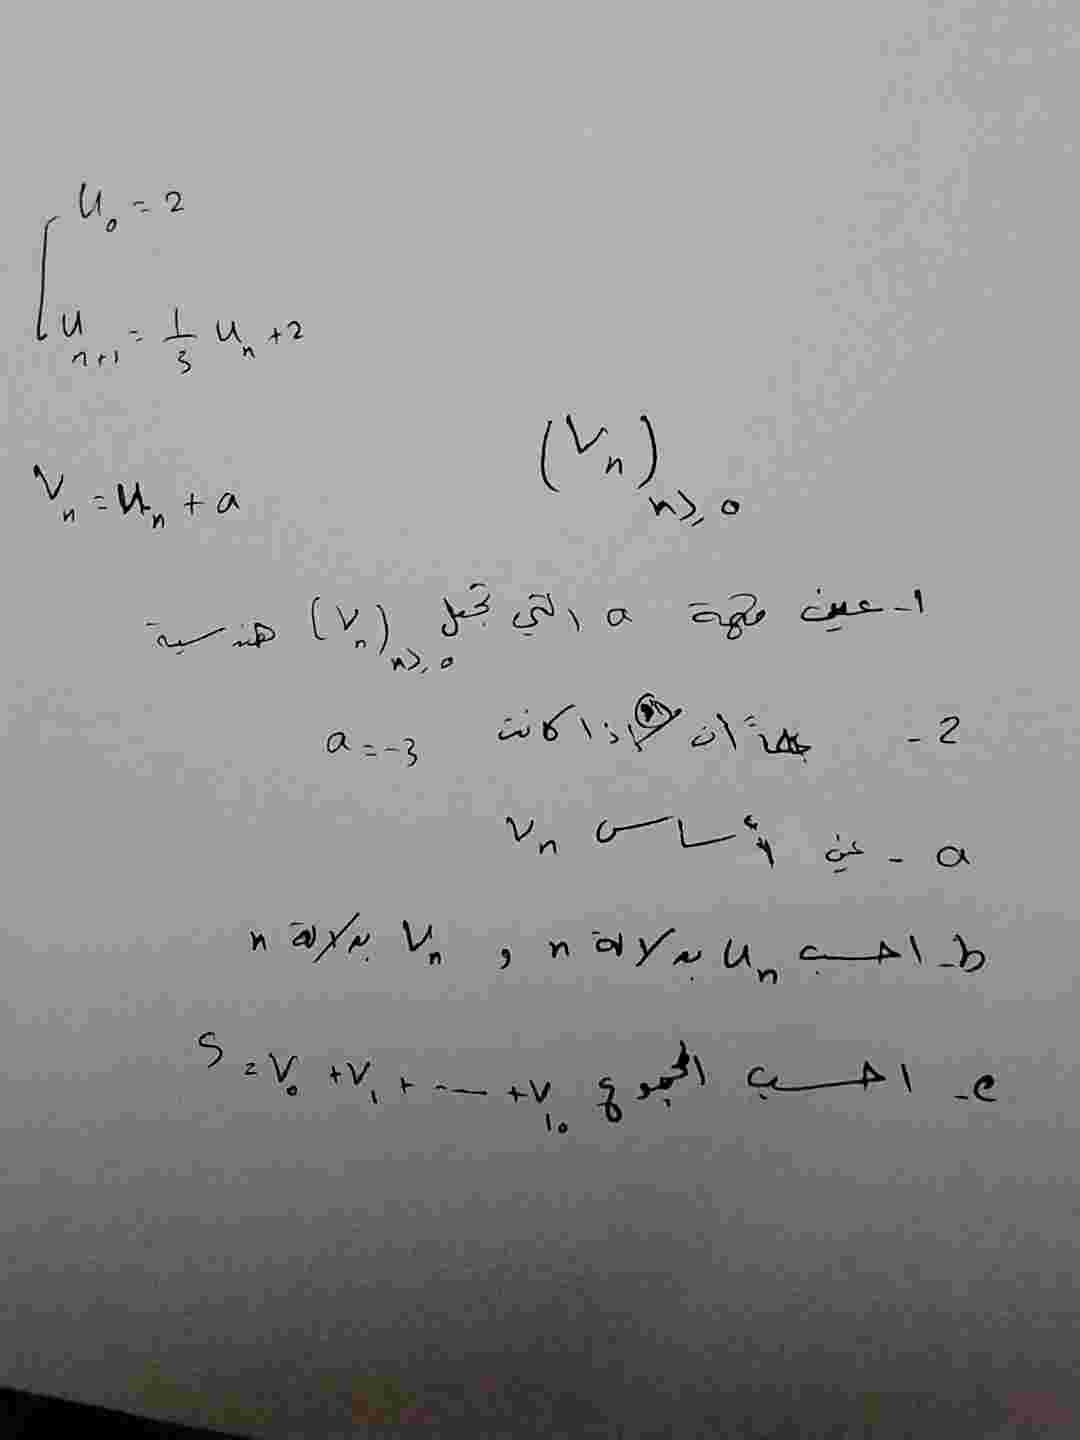 u₀ = 2
uₙ₊₁ = 1/3 uₙ + 2
(Vₙ)ₙ≥₀
Vₙ = uₙ + a
1- عين قيمة a التي تجعل (Vₙ)ₙ≥₀ هندسية
2- ان اذا كانت a = -3
a - عين أساس Vₙ
b- احسب uₙ بدلالة n و Vₙ بدلالة n
c- احسب المجموع S = V₀ + V₁ + ...... + V₁₀